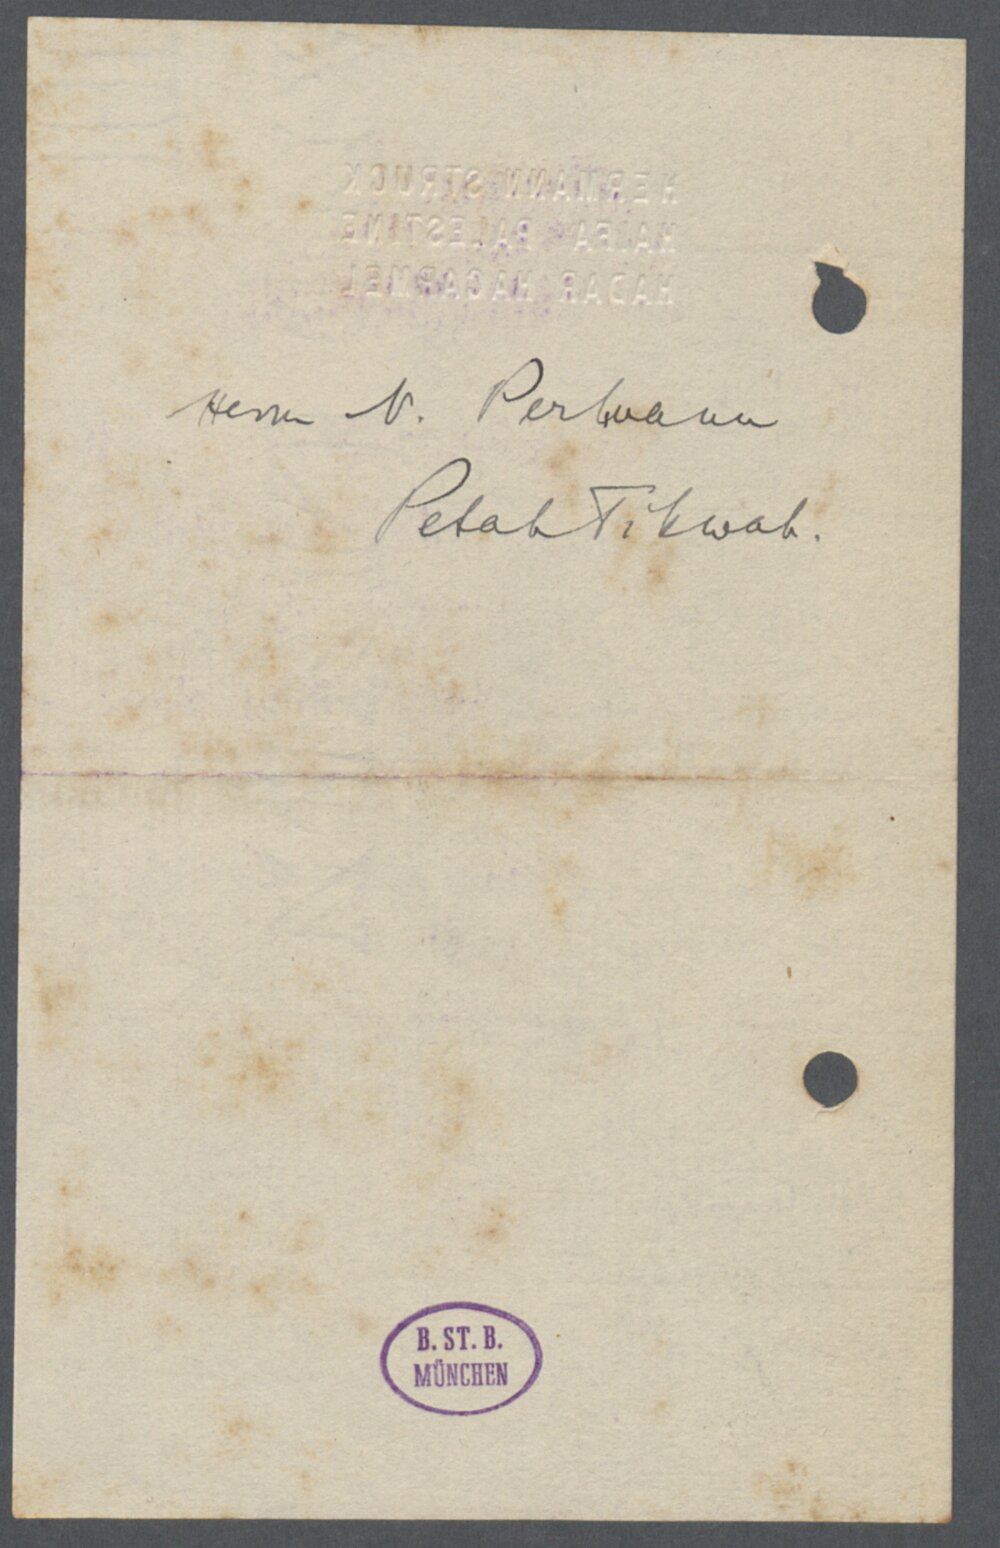 HERMANN STRUCK
HAIFA PALESTINE
HADAR HACARMEL
Herrn N. Perlmann
Petah Tikwah.
B. ST. B.
MÜNCHEN